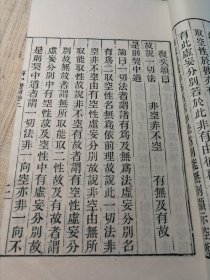 取空性於彼
有此虛妄分別若於此非有由彼
無倒顯示空
復次頌曰
故說一切法　非空非不空　有無及有故
是則契中道
論曰一切法者謂諸有為及無為法虛妄分別名
有為二取空性名無為依前理故說此一切法非
空非不空由有空性虛妄分別故說非空由無所
取能取性故說非不空有故者謂有空性虛妄分
別故無故者謂無所取能取二性故及有故者謂
虛妄分別中有空性故及空性中有虛妄分別故
是則契中道者謂一切法非一向空亦非一向不